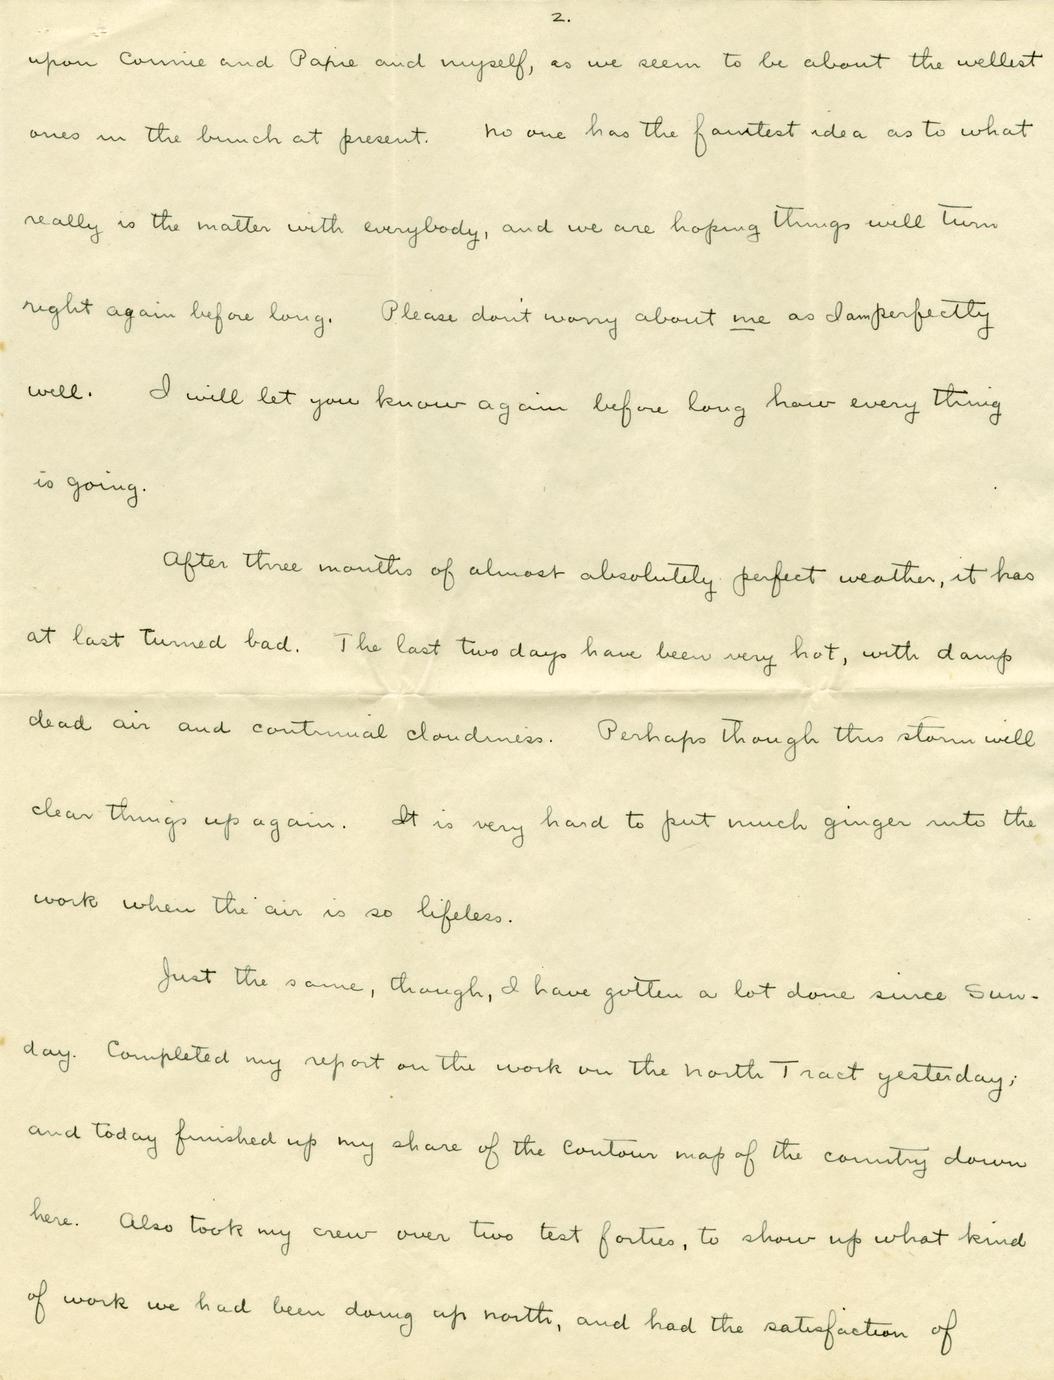 2.
upon Connie and Papie and myself, as we seem to be about the wellest
ones in the bunch at present. No one has the faintest idea as to what
really is the matter with everybody, and we are hoping things will turn
right again before long. Please don't worry about me as I am perfectly
well. I will let you know again before long how every thing
is going.
After three months of almost absolutely perfect weather, it has
at last turned bad. The last two days have been very hot, with damp
dead air and continual cloudiness. Perhaps though this storm will
clear things up again. It is very hard to put much ginger into the
work when the air is so lifeless.
Just the same, though, I have gotten a lot done since Sun-
day. Completed my report on the work on the North Tract yesterday;
and today finished up my share of the contour map of the country down
here. Also took my crew over two test forties, to show up what kind
of work we had been doing up north, and had the satisfaction of